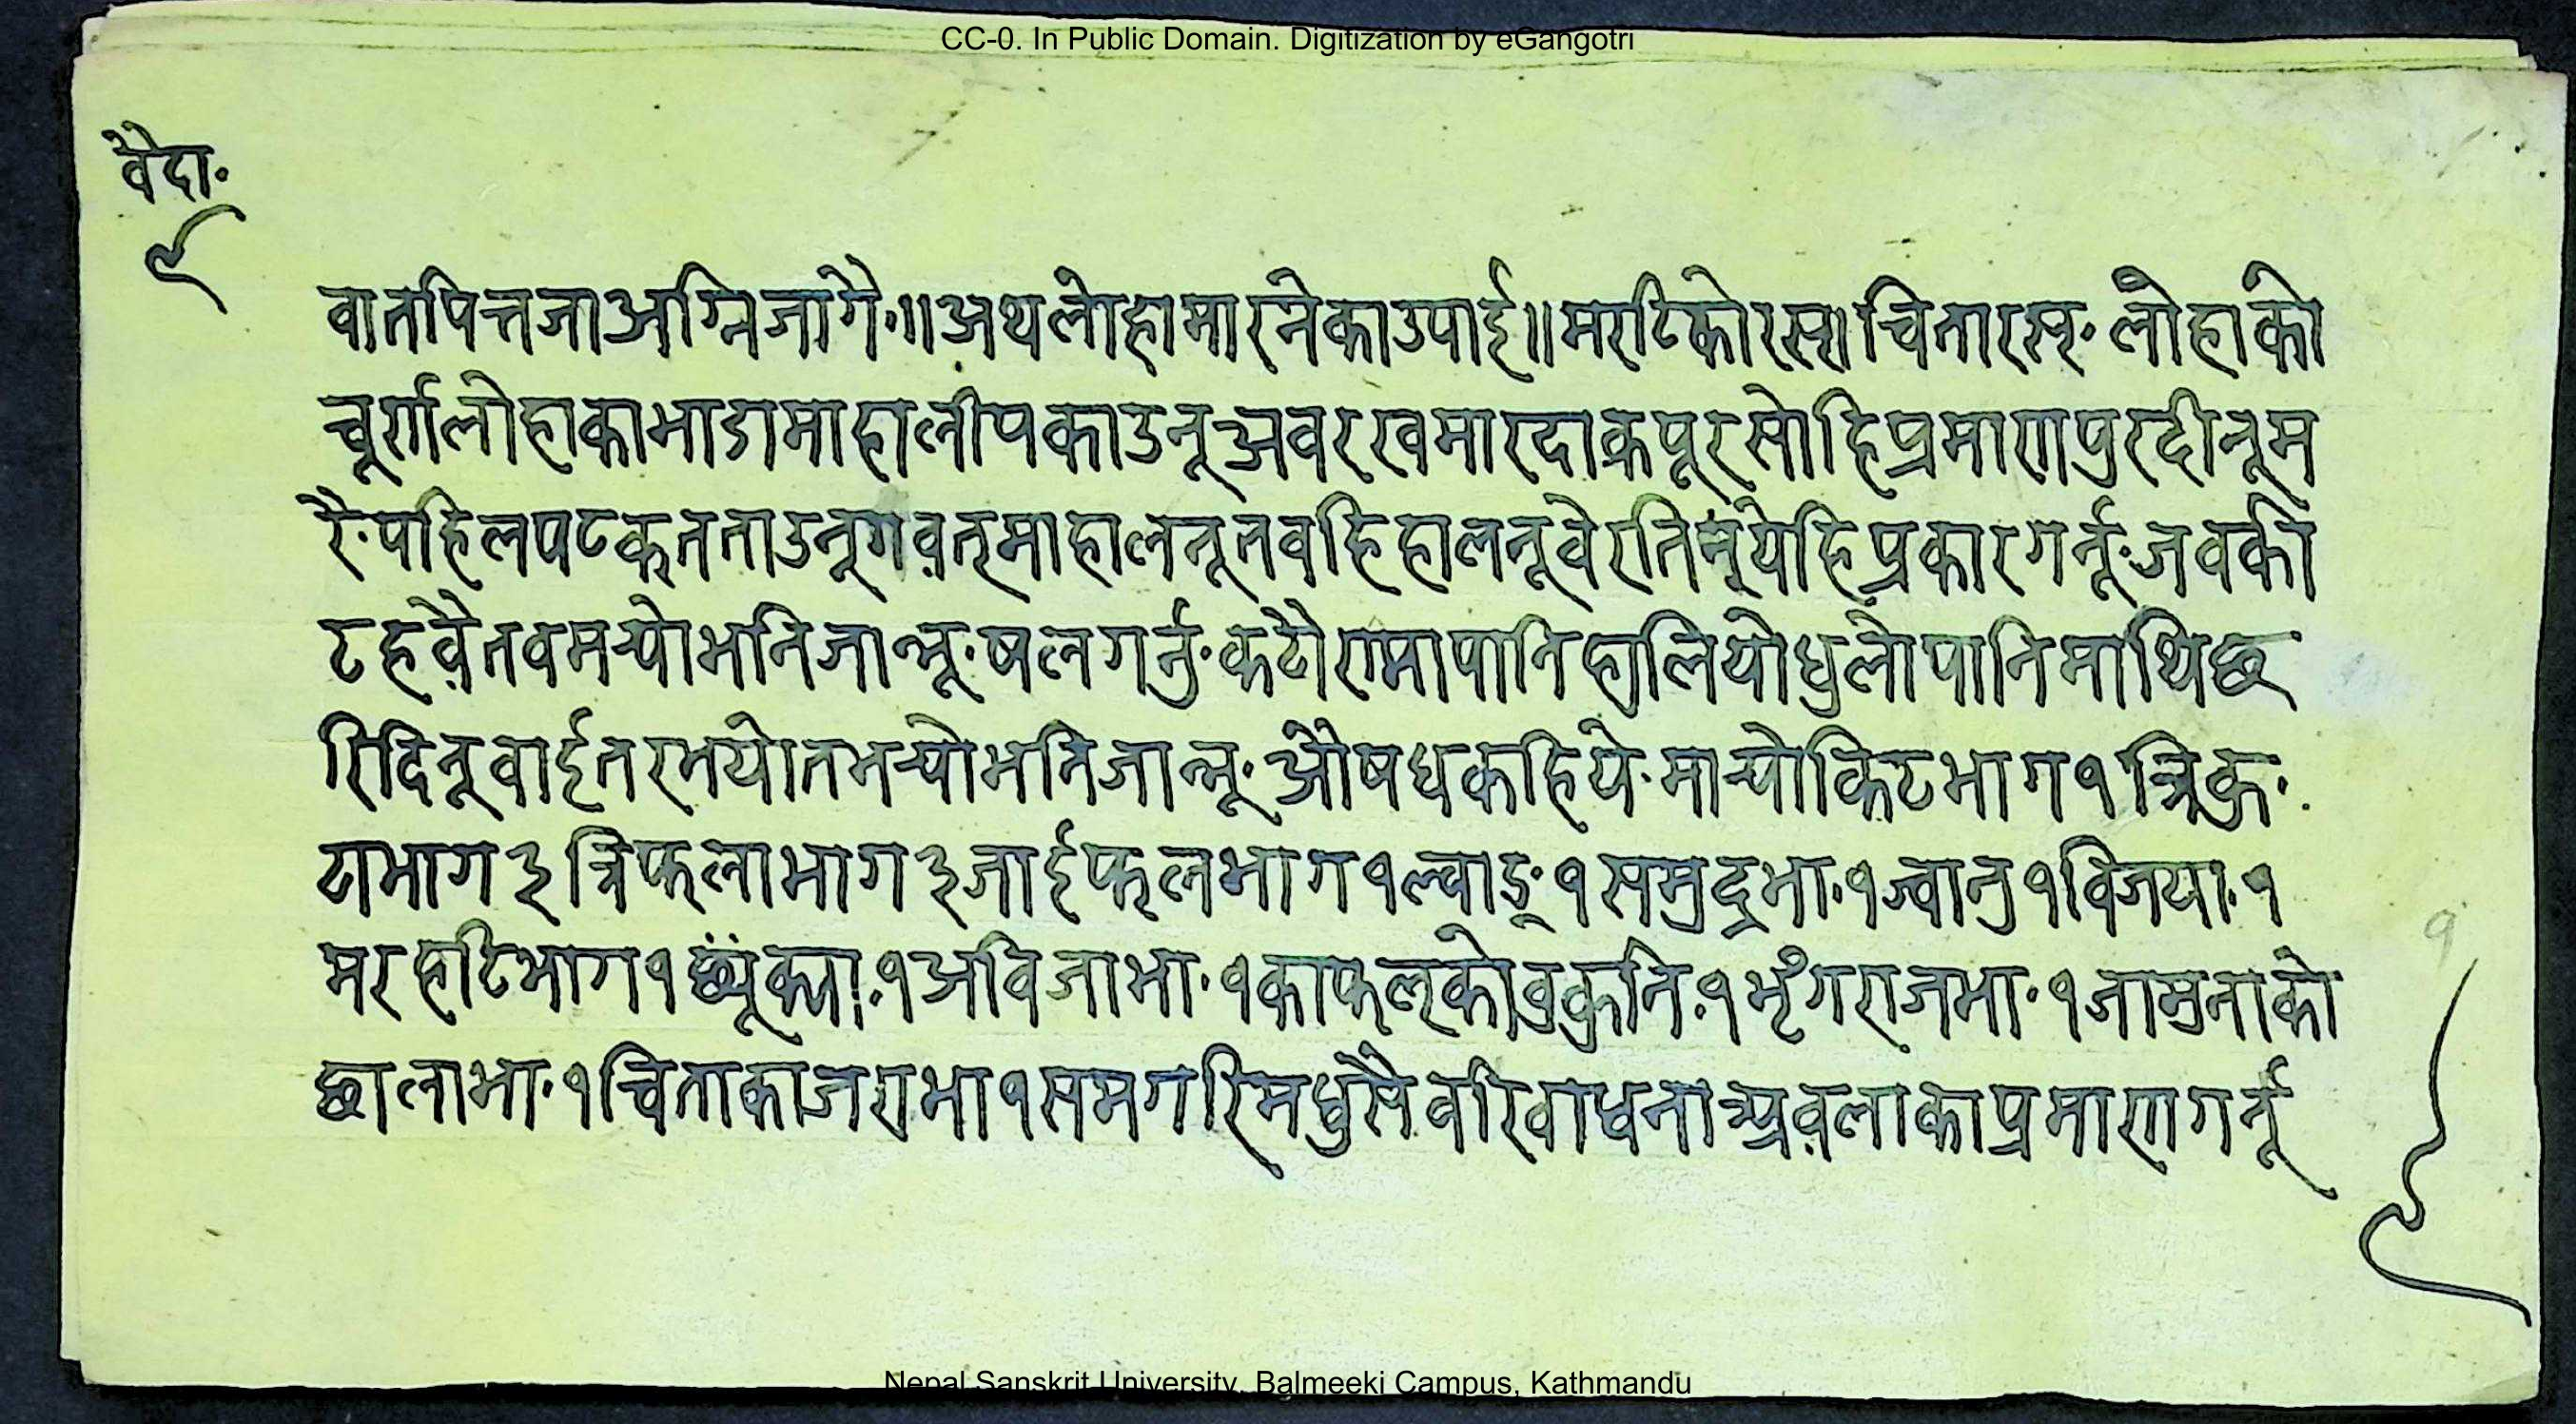 CC-0. In Public Domain. Digitization by eGangotri
वैदा॰
९
वातपित्तजाअग्निजागै॰॥अथलोहामारनेकाउपाई॥मराटिकोरस॥चितारस्॰लोहाको
चूर्णलोहाकाभाडामाहालीपकाउनूअवरखमारदाकपूरसोहिप्रमाणपुरदीनूम
रै॰पहिलपटकतताउनूगव़त्माहालनूतवहिहालनूवेरतिन्येहिप्रकारगर्नू॰जवकी
टहव़ैतवमर्‍योभनिजान्नू॰षलगर्नु॰कटौरामापानिहालियोधुलोपानिमाथिछ
रिदिनूवाईतरभयोतमर्‍योभनिजान्नू॰औषधकहिये॰मार्‍योकिटभाग१त्रिकु॰
टाभाग३त्रिफलाभाग३जाईफलभाग१ल्वाङ्॰१समुद्रभा॰१ज्वानु१विजया॰१
मरहाटिभाग१ १अविजाभा॰१काफल्कोवुकुनि॰१भृंगराजभा॰१जामुनाको
छालाभा॰१चिताकाजराभा१समगरिमधुसैवरिवाधना काप्रमाणगर्नू
१
९
Nepal Sanskrit University, Balmeeki Campus, Kathmandu